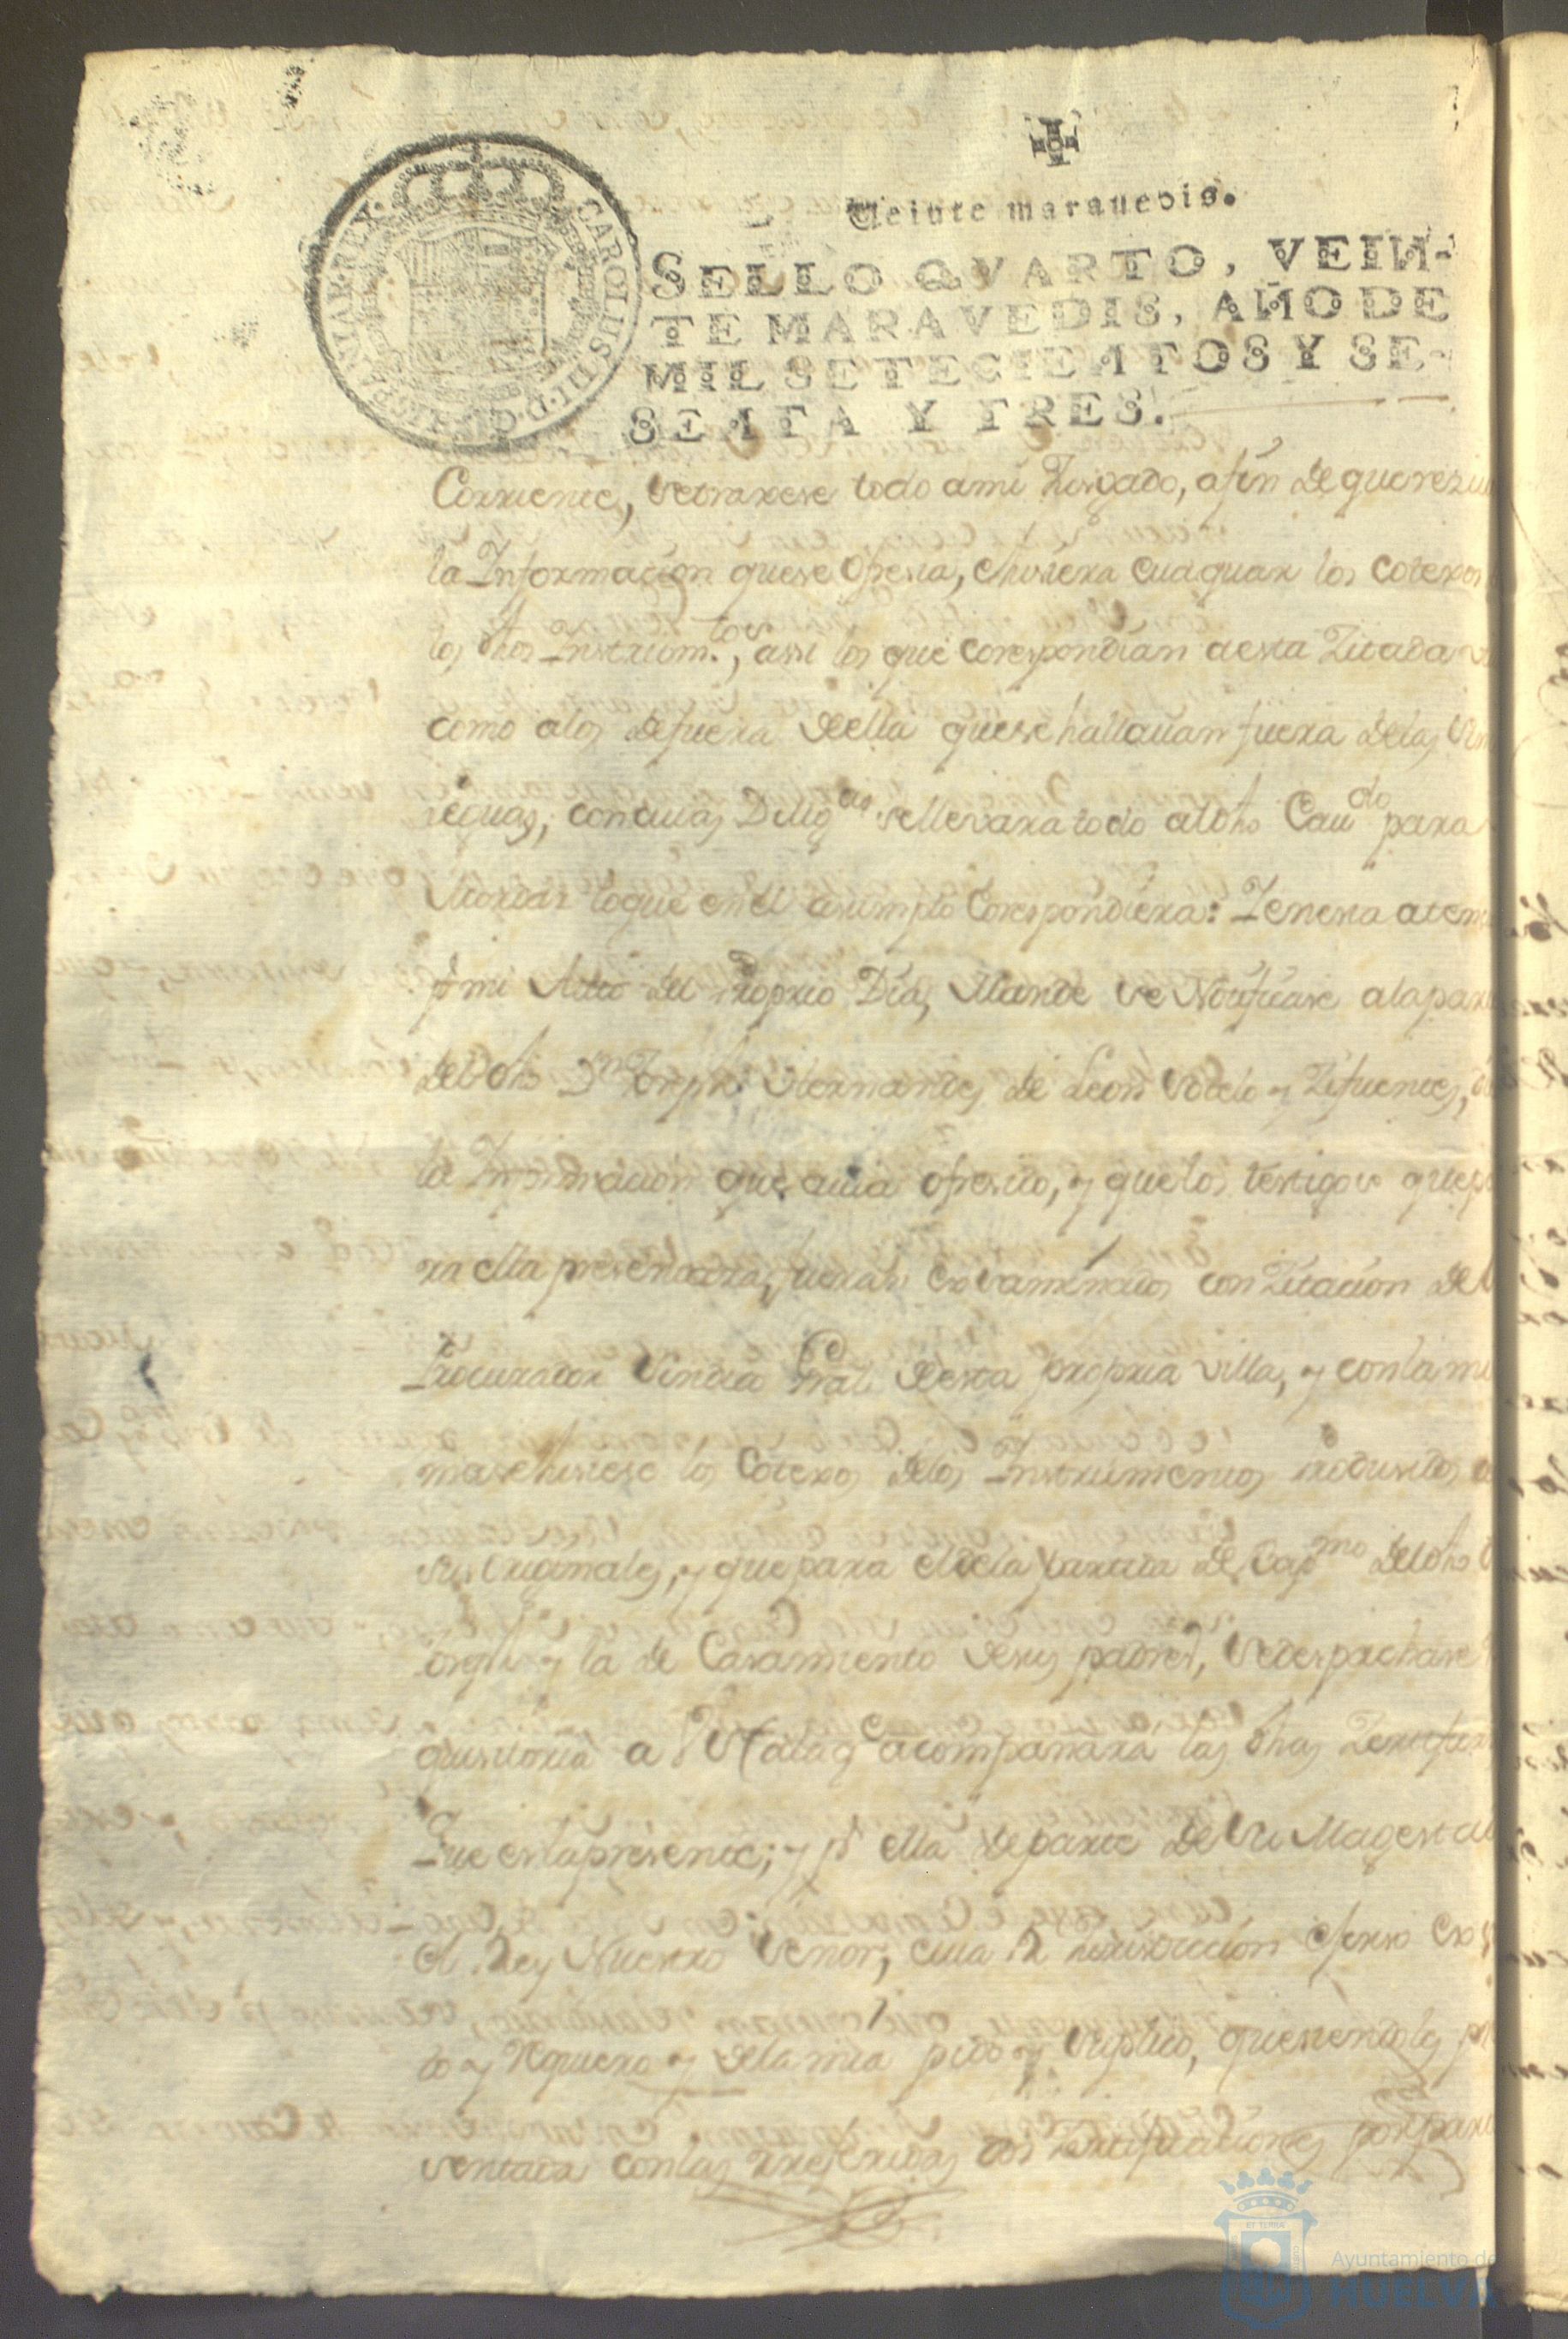 CAROLUS III D G HISPANIAR REX
Veinte marauedis.
SELLO QVARTO, VEIN-
TE MARAVEDIS, AÑO DE
MIL SETECIENTOS Y SE-
SENTA Y TRES.
Corriente, se traxese todo a mi Jusgado, a fin de que
la Informacion que se ofresia, e hisiera euaquar los cotexos
los dhos Instrum.tos, assi los que correspondian a esta Zitada
como a los de fuera de ella que se hallauan fuera de las
leguas, con cuias Dilig.as se lleuara todo al dho Cau.do para
acordar lo que en el asumpto Correspondiera: Y en esta
p.r mi Auto del Proprio Dia, Mande se Notificase a la
del dho D.n Joseph Hernandes de Leon Sotelo y Zifuentes,
la Informacion que auia ofresido, y que los testigos que
ra ella presentara, fueran exsaminados con Zitacion del
Procurador Sindico Gral de esta propria villa, y con la
ma se hisiese los Cotexos de los Instrumentos produsidos
sus Originales, y que para el de la Partida de Bap.mo del dho
Joseph y la de Casamiento de sus padres, se despachase
quisitoria a VS a la q.e acompañara las dhas
Que es la presente; y p.r ella de parte de Su Magestad
el Rey Nuestro Señor, cuia R. Jurisdiccion exerso
to y Requiero y de la mia pido y suplico, que siendole
sentada con las referidas dos Zertificaciones por
ET TERRA
Ayuntamiento de
HUELVA